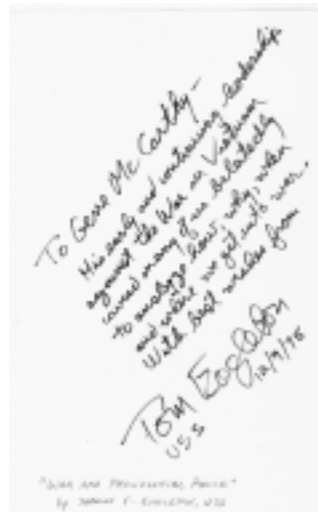 To Gene McCarthy-
His early and continuing leadership
against the War in Vietnam
caused many of us belatedly
to analyze how, why, when
and where we get into war.
With best wishes from
Tom Eagleton
USS
12/9/75
"War and Presidential Power"
by Thomas F. Eagleton, USS